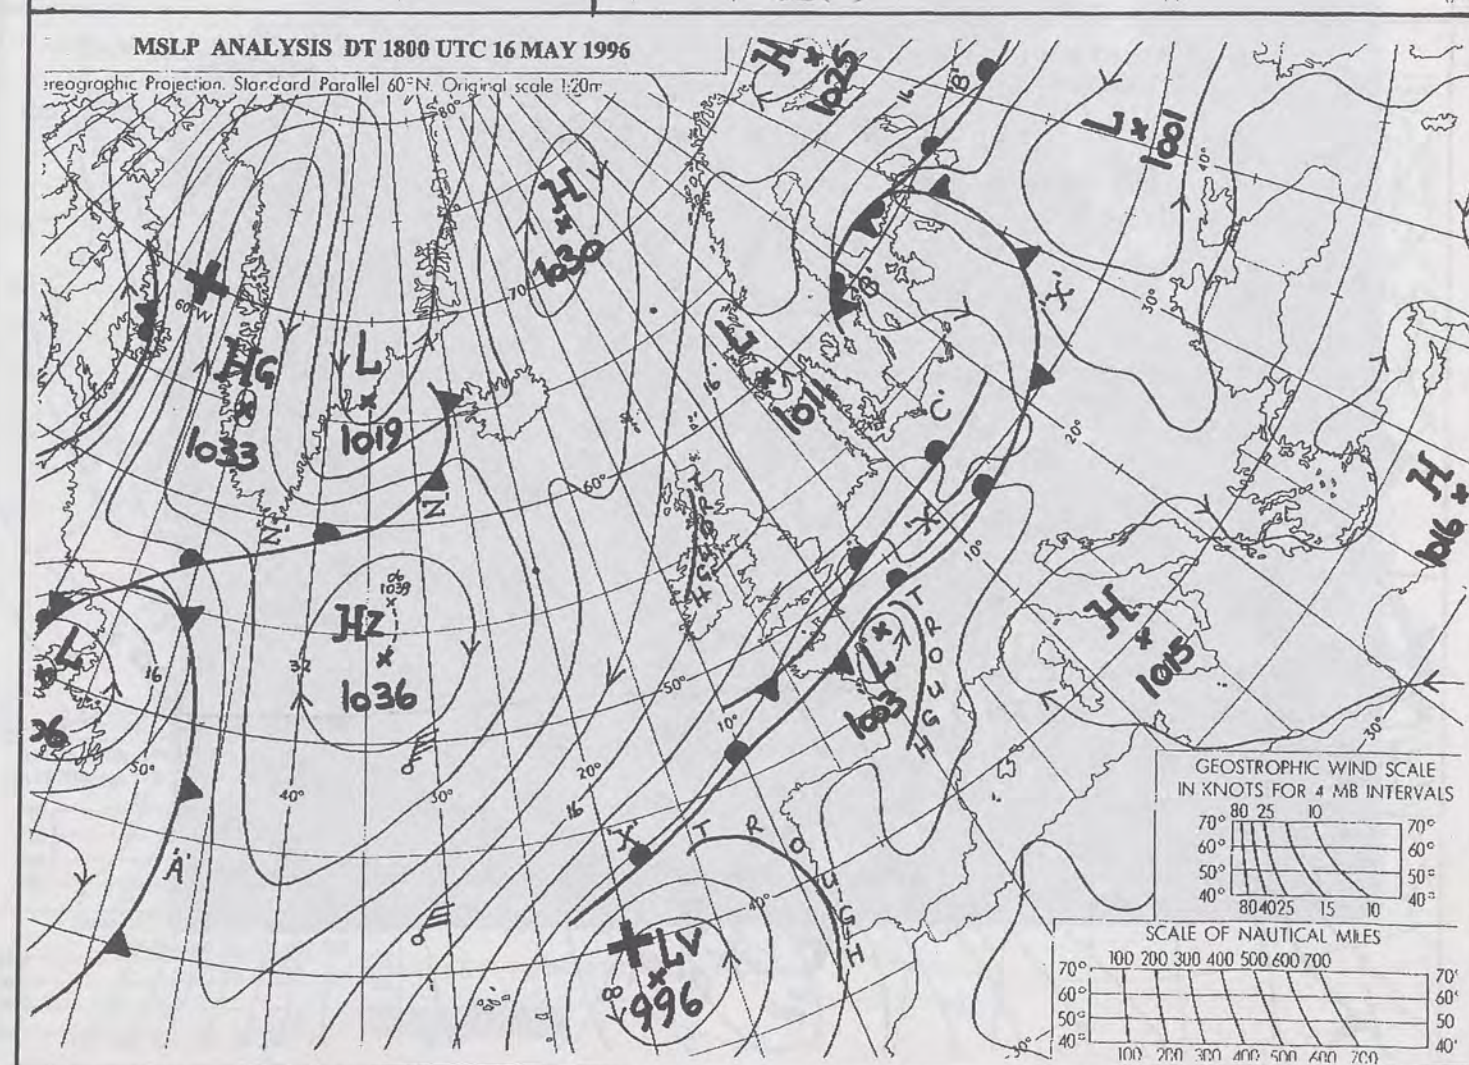 MSLP ANALYSIS DT 1800 UTC 16 MAY 1996
ereographic Projection. Standard Parallel 60°N. Original scale 1:20m
80°
H
1025
16
'B'
L
1001
40°
H
1030
70°
60°W
HG
1033
L
1019
L
1011
16
'B'
'X'
30°
'C'
20°
H
1016
60°
'N'
'N'
TROUGH
'X'
10°
06
1039
Hz
1036
32
L
16
50°
40°
30°
20°
16
10°
50°
L
1003
TROUGH
H
1015
30°
'A'
'X'
TROUGH
40°
LV
996
00
30°
GEOSTROPHIC WIND SCALE
IN KNOTS FOR 4 MB INTERVALS
80 25 10
70° 70°
60° 60°
50° 50°
40° 40°
80 40 25 15 10
SCALE OF NAUTICAL MILES
100 200 300 400 500 600 700
70° 70°
60° 60°
50° 50
40° 40°
100 200 300 400 500 600 700